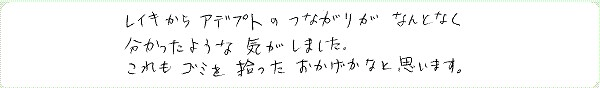 レイキから アデプトの つながりが なんとなく
分かったような 気がしました。
これも ゴミを 拾った おかげかなと 思います。